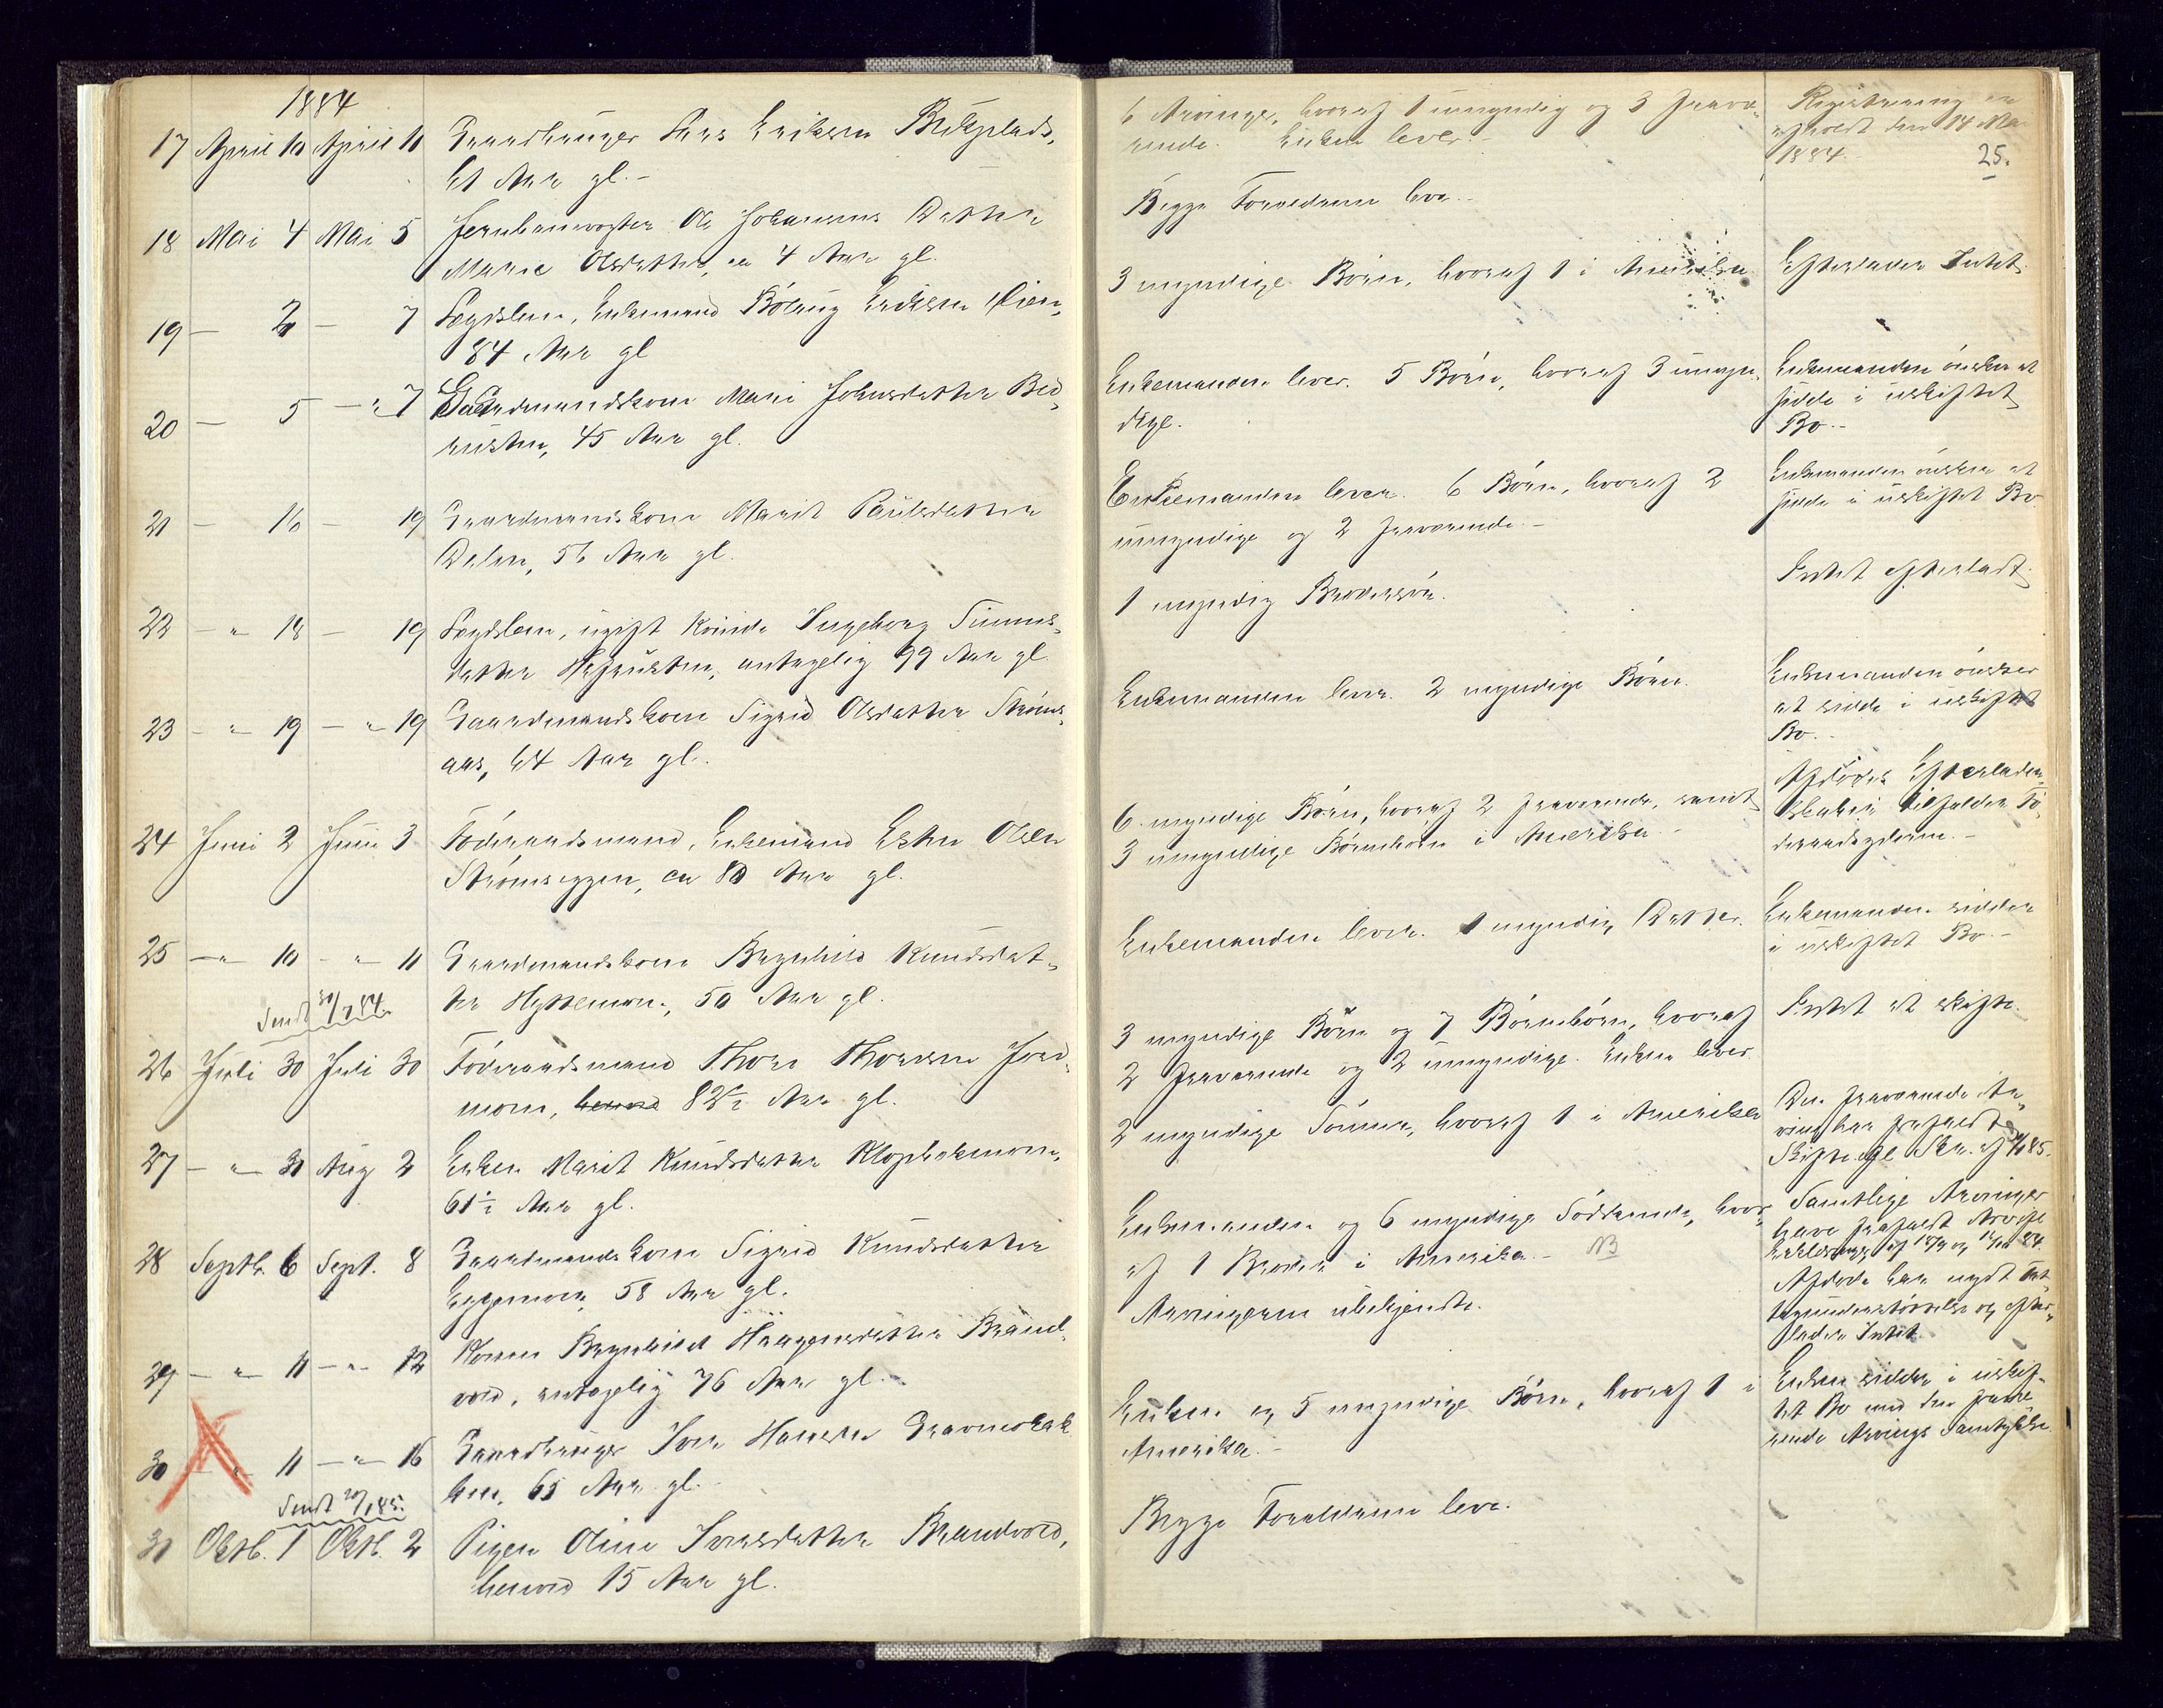 1884
17 April 10 April 11 Gaardbruger Lars Eriksen
61 Aar gl.-
18 Mai 4 Mai 5 Jernbanevogter Ole Johansens Datter
Marie Olsdatter, ca 4 Aar gl.
19 — — 7 Lægdslem, Enkemand Eriksen
84 Aar gl
20 — 5 — " 7 Gaardmandskone Mari Johnsdatter
45 Aar gl.
21 — 16 — 19 Gaardmandskone Marit Paulsdatter
Dalen, 56 Aar gl.
22 — " 18 — 19 Lægdslem, ugift Kvinde Ingeborg Simens-
datter antagelig 99 Aar gl.
23 — " 19 — " 19 Gaardmandskone Sigrid Olsdatter Strøms-
aas, 64 Aar gl.
24 Juni 2 Juni 3 Føderaadsmand, Enkemand Esten Olsen
Strømseggen, ca 80 Aar gl.
25 — " 10 — " 11 Gaardmandskone Ragnhild Knudsdat-
ter 50 Aar gl.
Sendt 30/7 84.
26 Juli 30 Juli 30 Føderaadsmand Thore Thoresen
moen, 82½ Aar gl.
27 — " 31 Aug 2 Enken Marit Knudsdatter
61½ Aar gl.
28 Septb. 6 Sept. 8 Gaardmandskone Sigrid Knudsdatter
Eggemoen, 58 Aar gl.
29 — " 11 — " 12 Konen Ragnhild Haagensdatter Brand-
vold, antagelig 76 Aar gl.
30 — " 11 — " 16 Gaardbruger Iver Hansen
65 Aar gl.-
Sendt 20/1 85.
31 Oktb. 1 Oktb. 2 Pigen Oline Iversdatter Brandvold,
henved 15 Aar gl.
6 Arvinger, hvoraf 1 umyndig og 3 fravæ-
rende. Enken lever.-
Registrering er
afholdt den 14 Mai
1884.
25.
Begge Forældrene leve.-
3 myndige Børn, hvoraf 1 i Amerika
Efterlader Intet.
Enkemanden lever. 5 Børn, hvoraf 3 umyn-
dige.
Enkemanden ønsker at
sidde i uskiftet
Bo.-
Enkemanden lever. 6 Børn, hvoraf 2
umyndige og 2 fraværende.-
Enkemanden ønsker at
sidde i uskiftet Bo.
1 myndig Brodersøn.
Intet efterladt.
Enkemanden lever. 2 myndige Børn.
Enkemanden ønsker
at sidde i uskiftet
Bo.-
6 myndige Børn, hvoraf 2 fraværende, samt
3 umyndige Børnebørn i Amerika.-
Afdødes Efterladen-
skaber tilfalder Fø-
deraadsyderen.-
Enkemanden lever. 1 myndig Datter.
Enkemanden sidder
i uskiftet Bo.-
3 myndige Børn og 7 Børnebørn, hvoraf
2 fraværende og 2 umyndige. Enken lever.
Intet at skifte.
2 myndige Sønner, hvoraf 1 i Amerika
Den fraværende Ar-
ving har frafaldt
Skifte.
Enkemanden og 6 myndige Sødskende, hvor-
af 1 Broder i Amerika.- NB
Samtlige Arvinger
have frafaldt Arv
Arvingerne ubekjendte.
Afdøde har nydt Fat-
tigunderstøttelse og efter-
lader Intet.
Enken og 5 myndige Børn, hvoraf 1 i
Amerika.-
Enken sidder i uskif-
tet Bo med den fravæ-
rende Arvings Samtykke
Begge Forældrene leve.